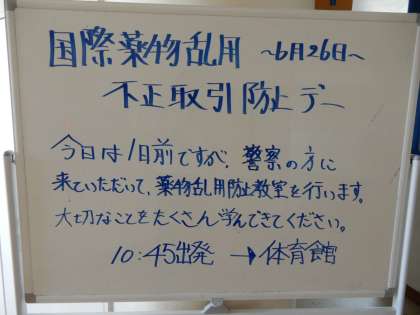 国際薬物乱用 ～6月26日～
不正取引防止デー
今日は1日前ですが、警察の方に
来ていただいて、薬物乱用防止教室を行います。
大切なことをたくさん学んできてください。
10:45出発 →体育館